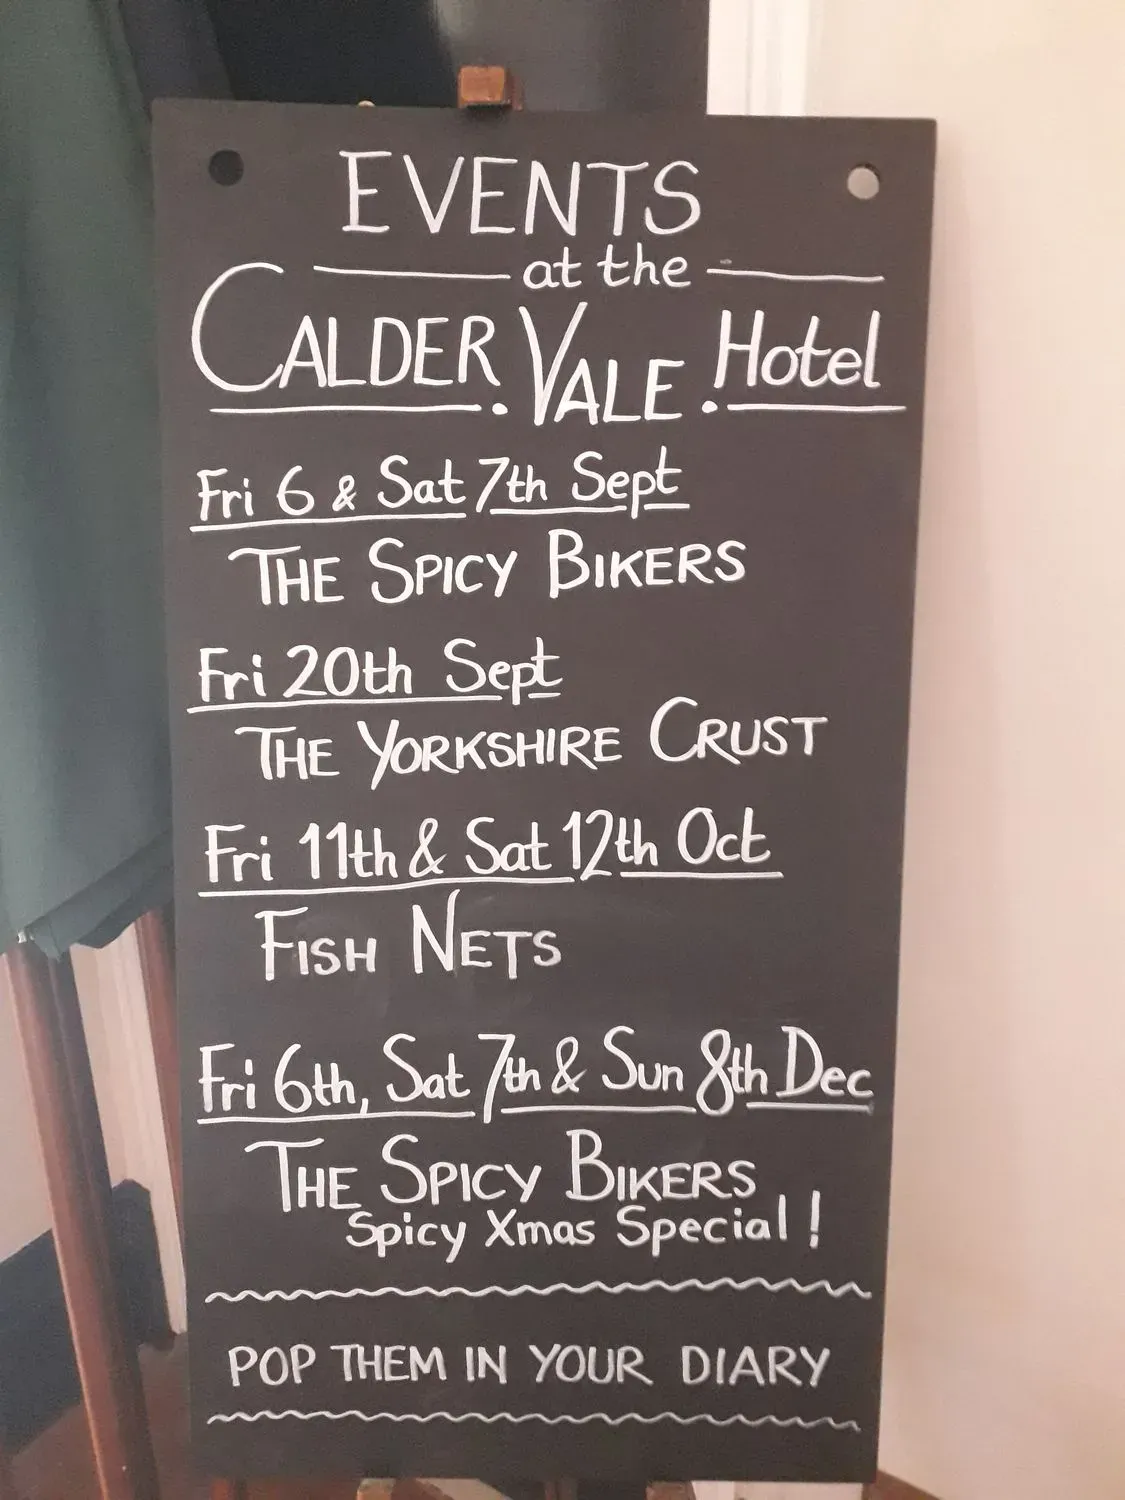 EVENTS
at the
CALDER. VALE. Hotel
Fri 6 & Sat 7th Sept
THE SPICY BIKERS
Fri 20th Sept
THE YORKSHIRE CRUST
Fri 11th & Sat 12th Oct
FISH NETS
Fri 6th, Sat 7th & Sun 8th Dec
THE SPICY BIKERS
Spicy Xmas Special!
POP THEM IN YOUR DIARY